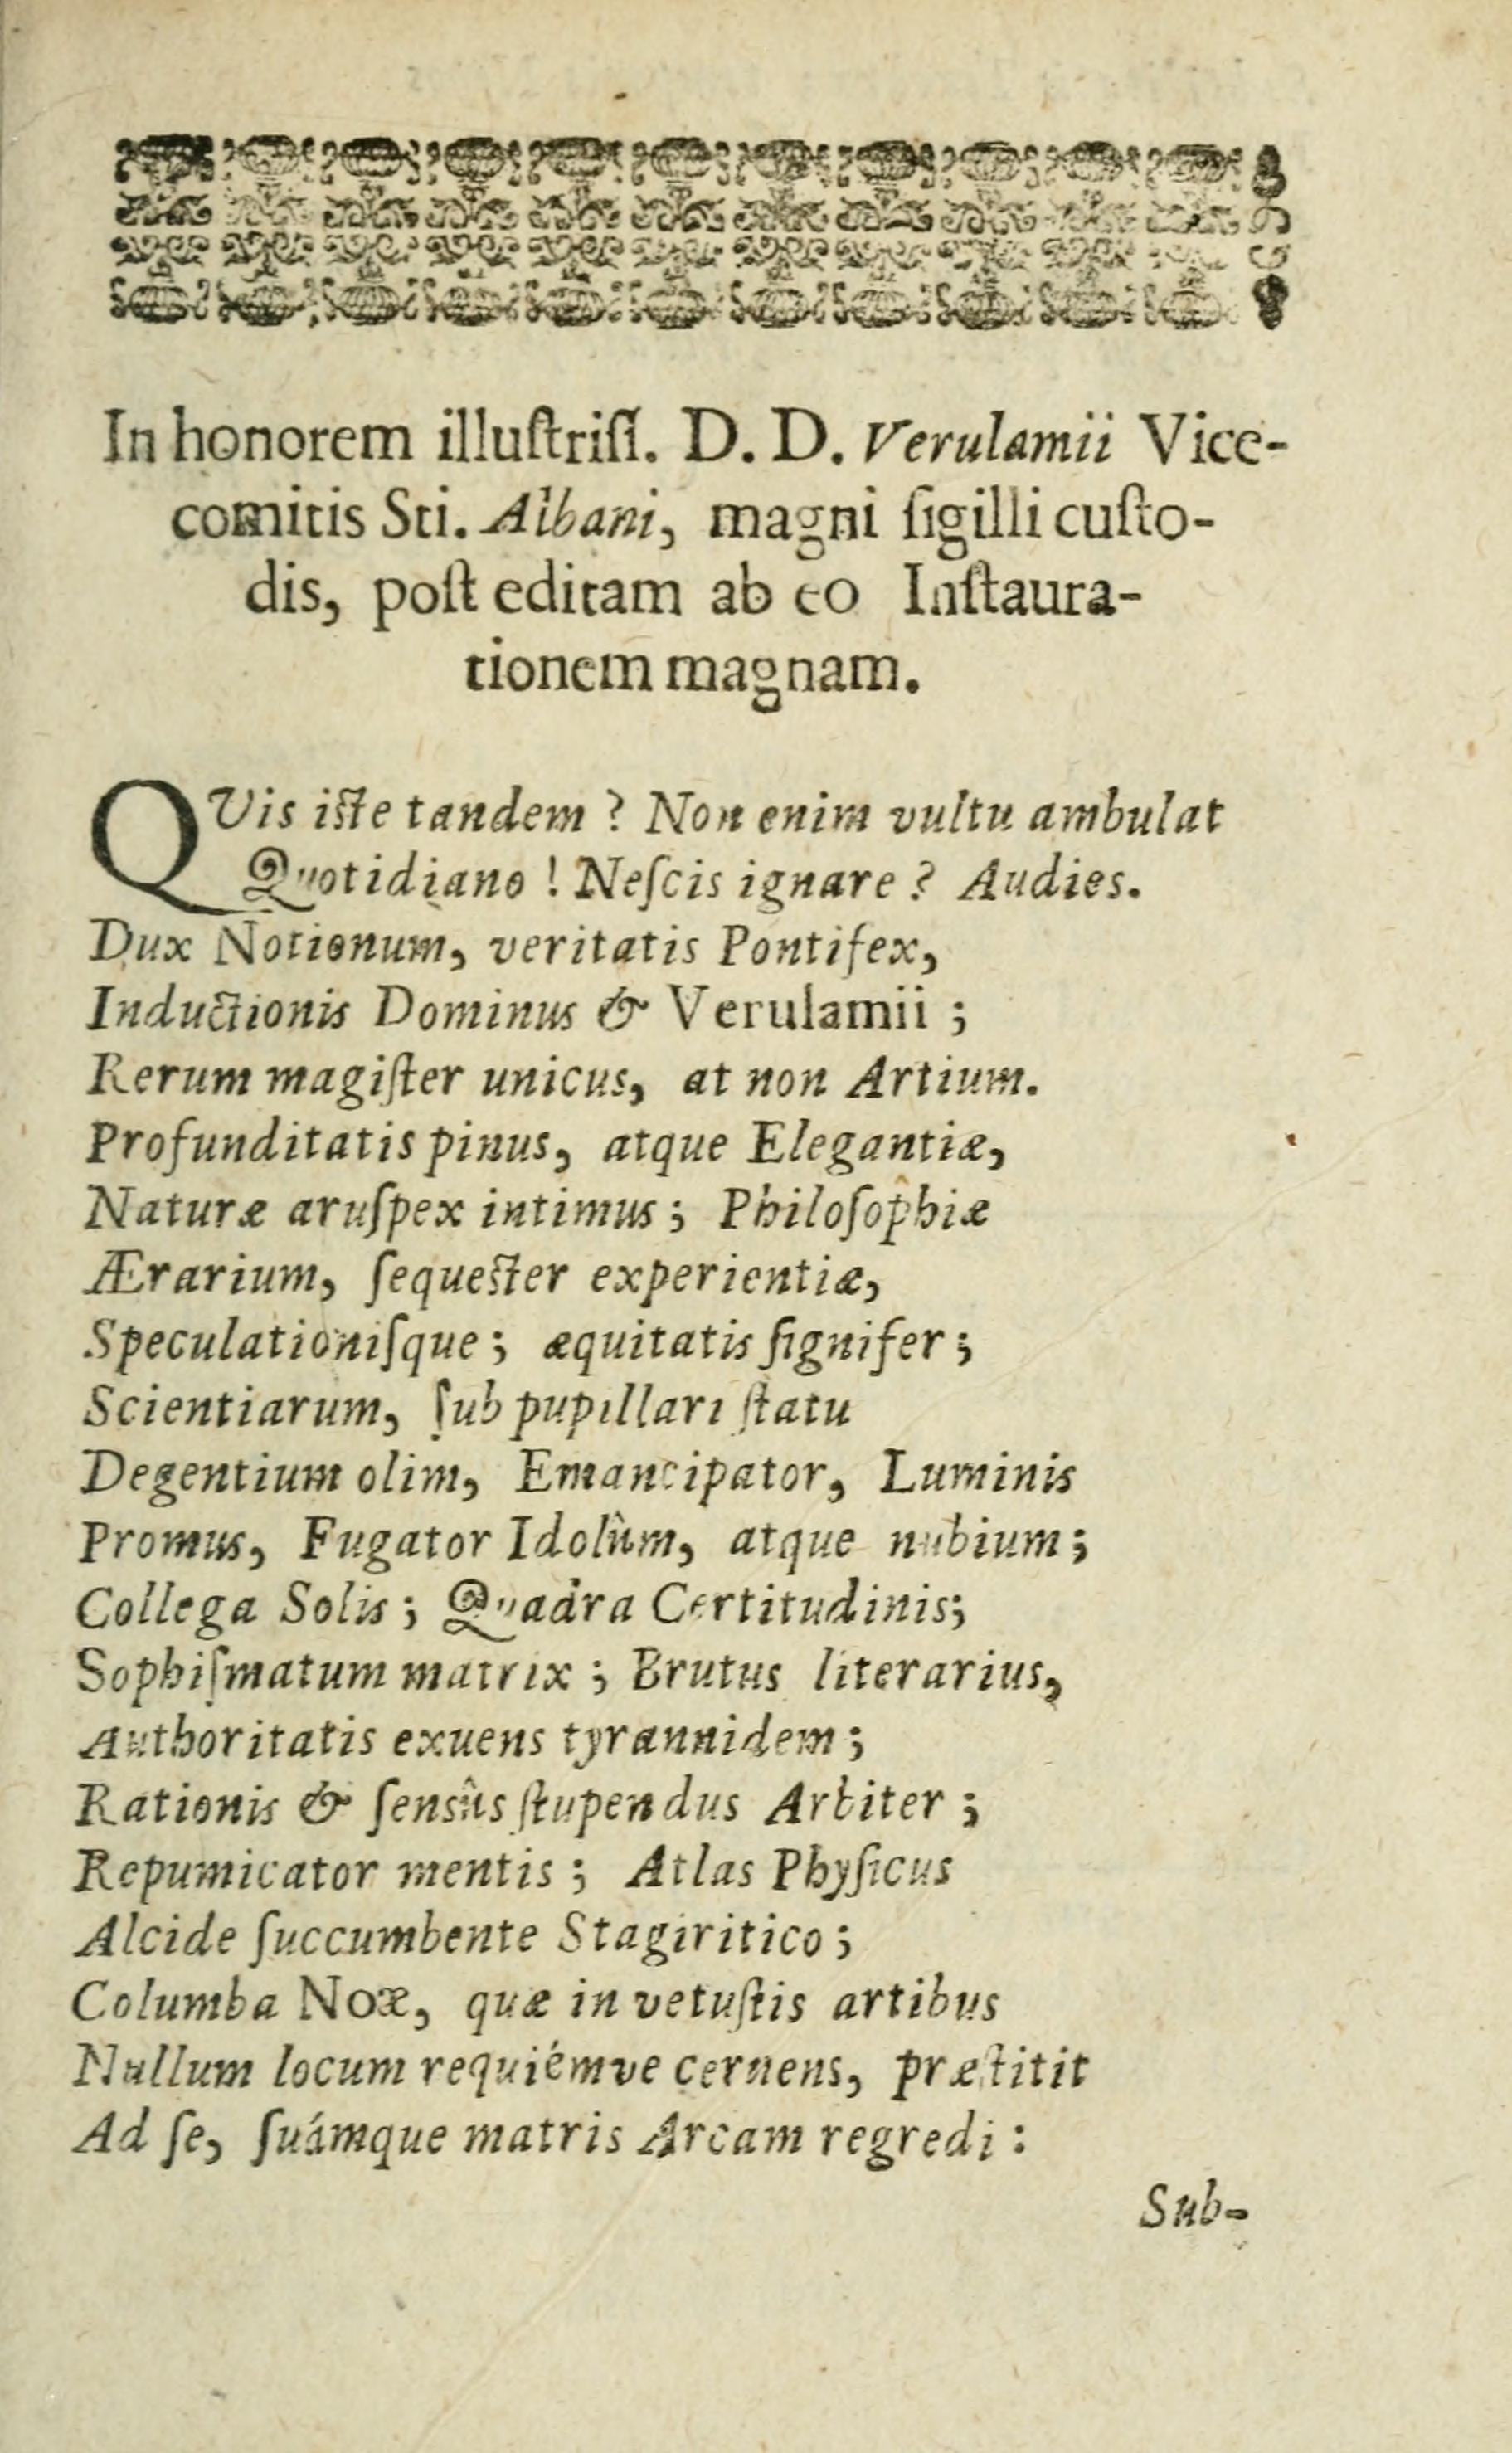 In honorem illuſtriſſ. D. D. Verulamii Vice-
comitis Sti. Albani, magni ſigilli cuſto-
dis, poſt editam ab eo Inſtaura-
tionem magnam.
QVis iſte tandem ? Non enim vultu ambulat
Quotidiano ! Neſcis ignare ? Audies.
Dux Notionum, veritatis Pontifex,
Inductionis Dominus & Verulamii ;
Rerum magiſter unicus, at non Artium.
Profunditatis pinus, atque Elegantiæ,
Naturæ aruſpex intimus ; Philoſophiæ
Ærarium, ſequeſter experientiæ,
Speculationiſque ; æquitatis ſignifer ;
Scientiarum, ſub pupillari ſtatu
Degentium olim, Emancipator, Luminis
Promus, Fugator Idolûm, atque nubium ;
Collega Solis ; Quadra Certitudinis;
Sophiſmatum matrix ; Brutus literarius,
Authoritatis exuens tyrannidem ;
Rationis & ſensûs ſtupendus Arbiter ;
Repumicator mentis ; Atlas Phyſicus
Alcide ſuccumbente Stagiritico ;
Columba Noæ, quæ in vetuſtis artibus
Nullum locum requiémve cernens, præſtitit
Ad ſe, ſuámque matris Arcam regredi :
Sub-